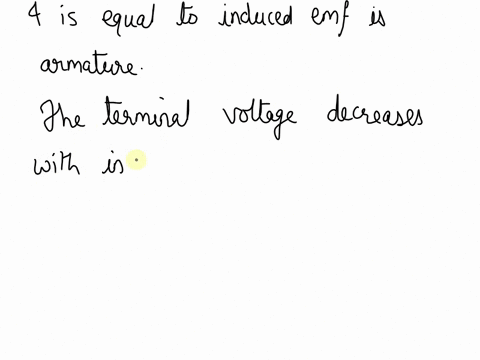 4 is equal to induced emf is
armature.
The terminal voltage decreases
with is